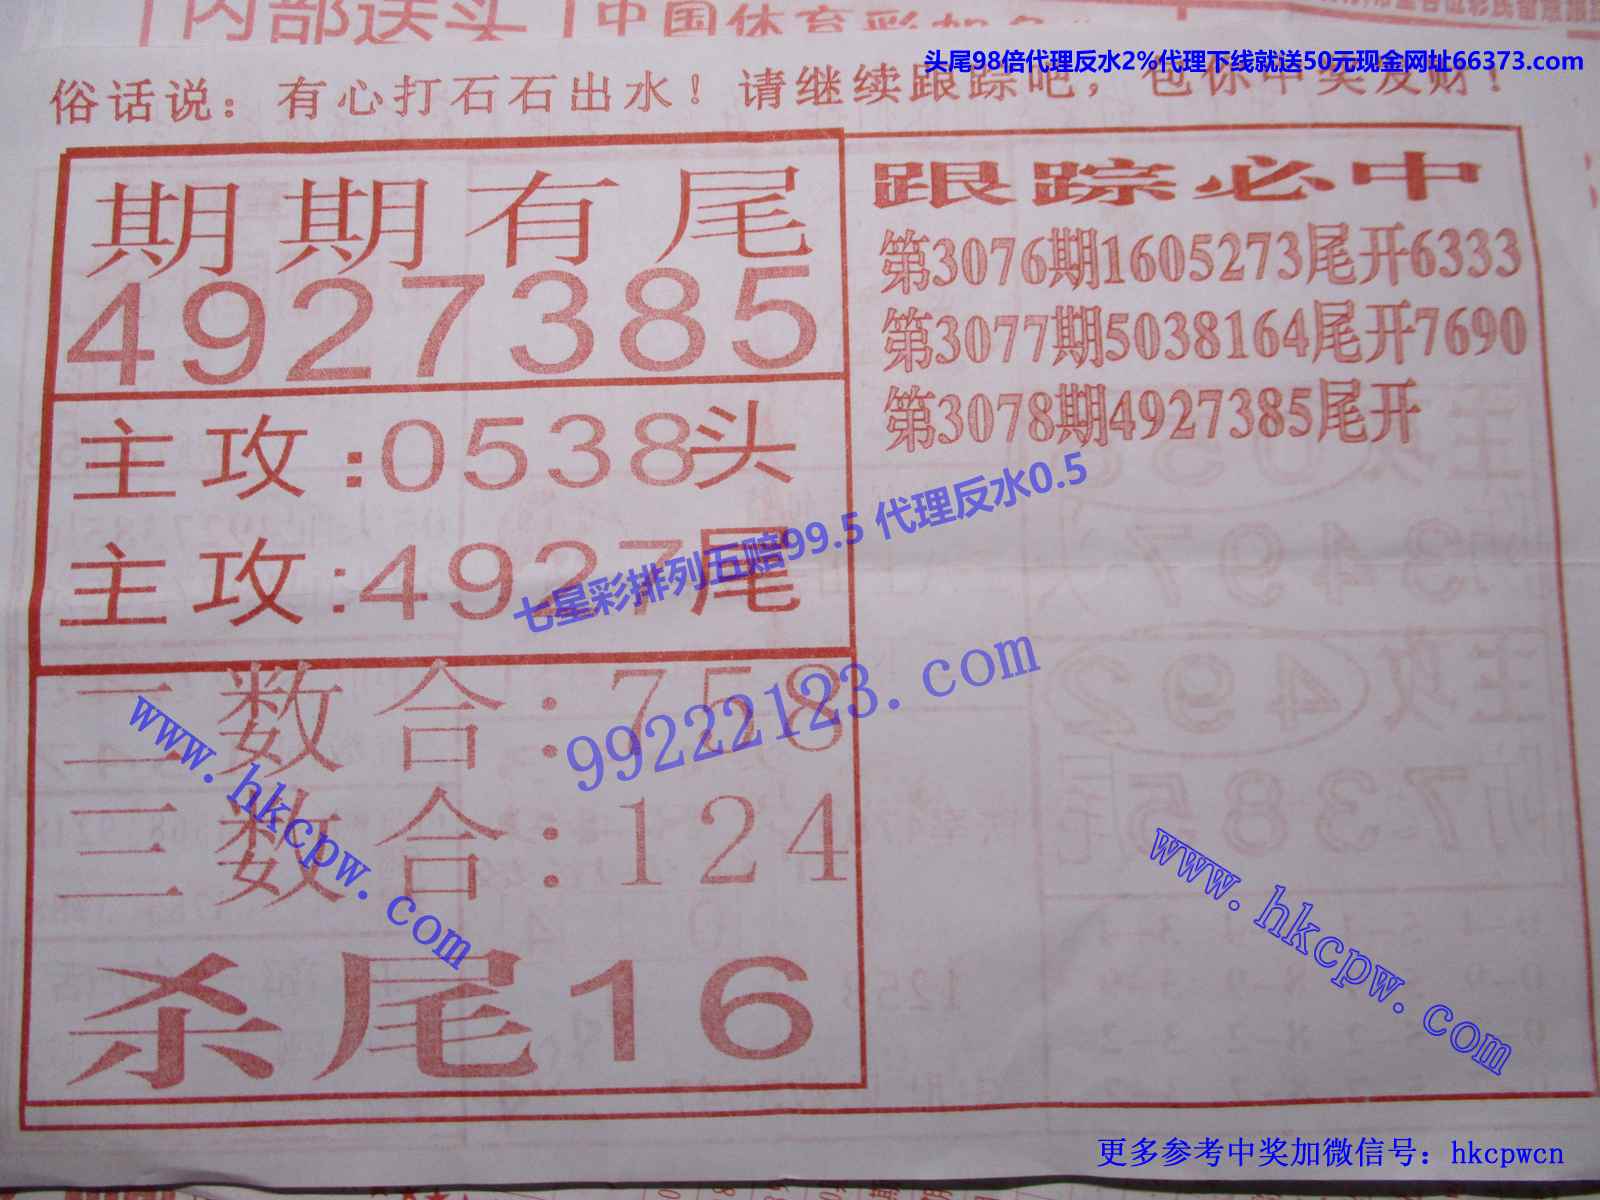 内部送头
中国体育彩
头尾98倍代理反水2%代理下线就送50元现金网址66373.com
俗话说：有心打石石出水！请继续跟踪吧，包你中奖发财！
期期有尾
4927385
主攻:0538头
主攻:4927尾
二数合:758
三数合:124
杀尾16
跟踪必中
第3076期1605273尾开6333
第3077期5038164尾开7690
第3078期4927385尾开
七星彩排列五赔99.5 代理反水0.5
99222123.com
www.hkcpw.com
www.hkcpw.com
更多参考中奖加微信号：hkcpwcn